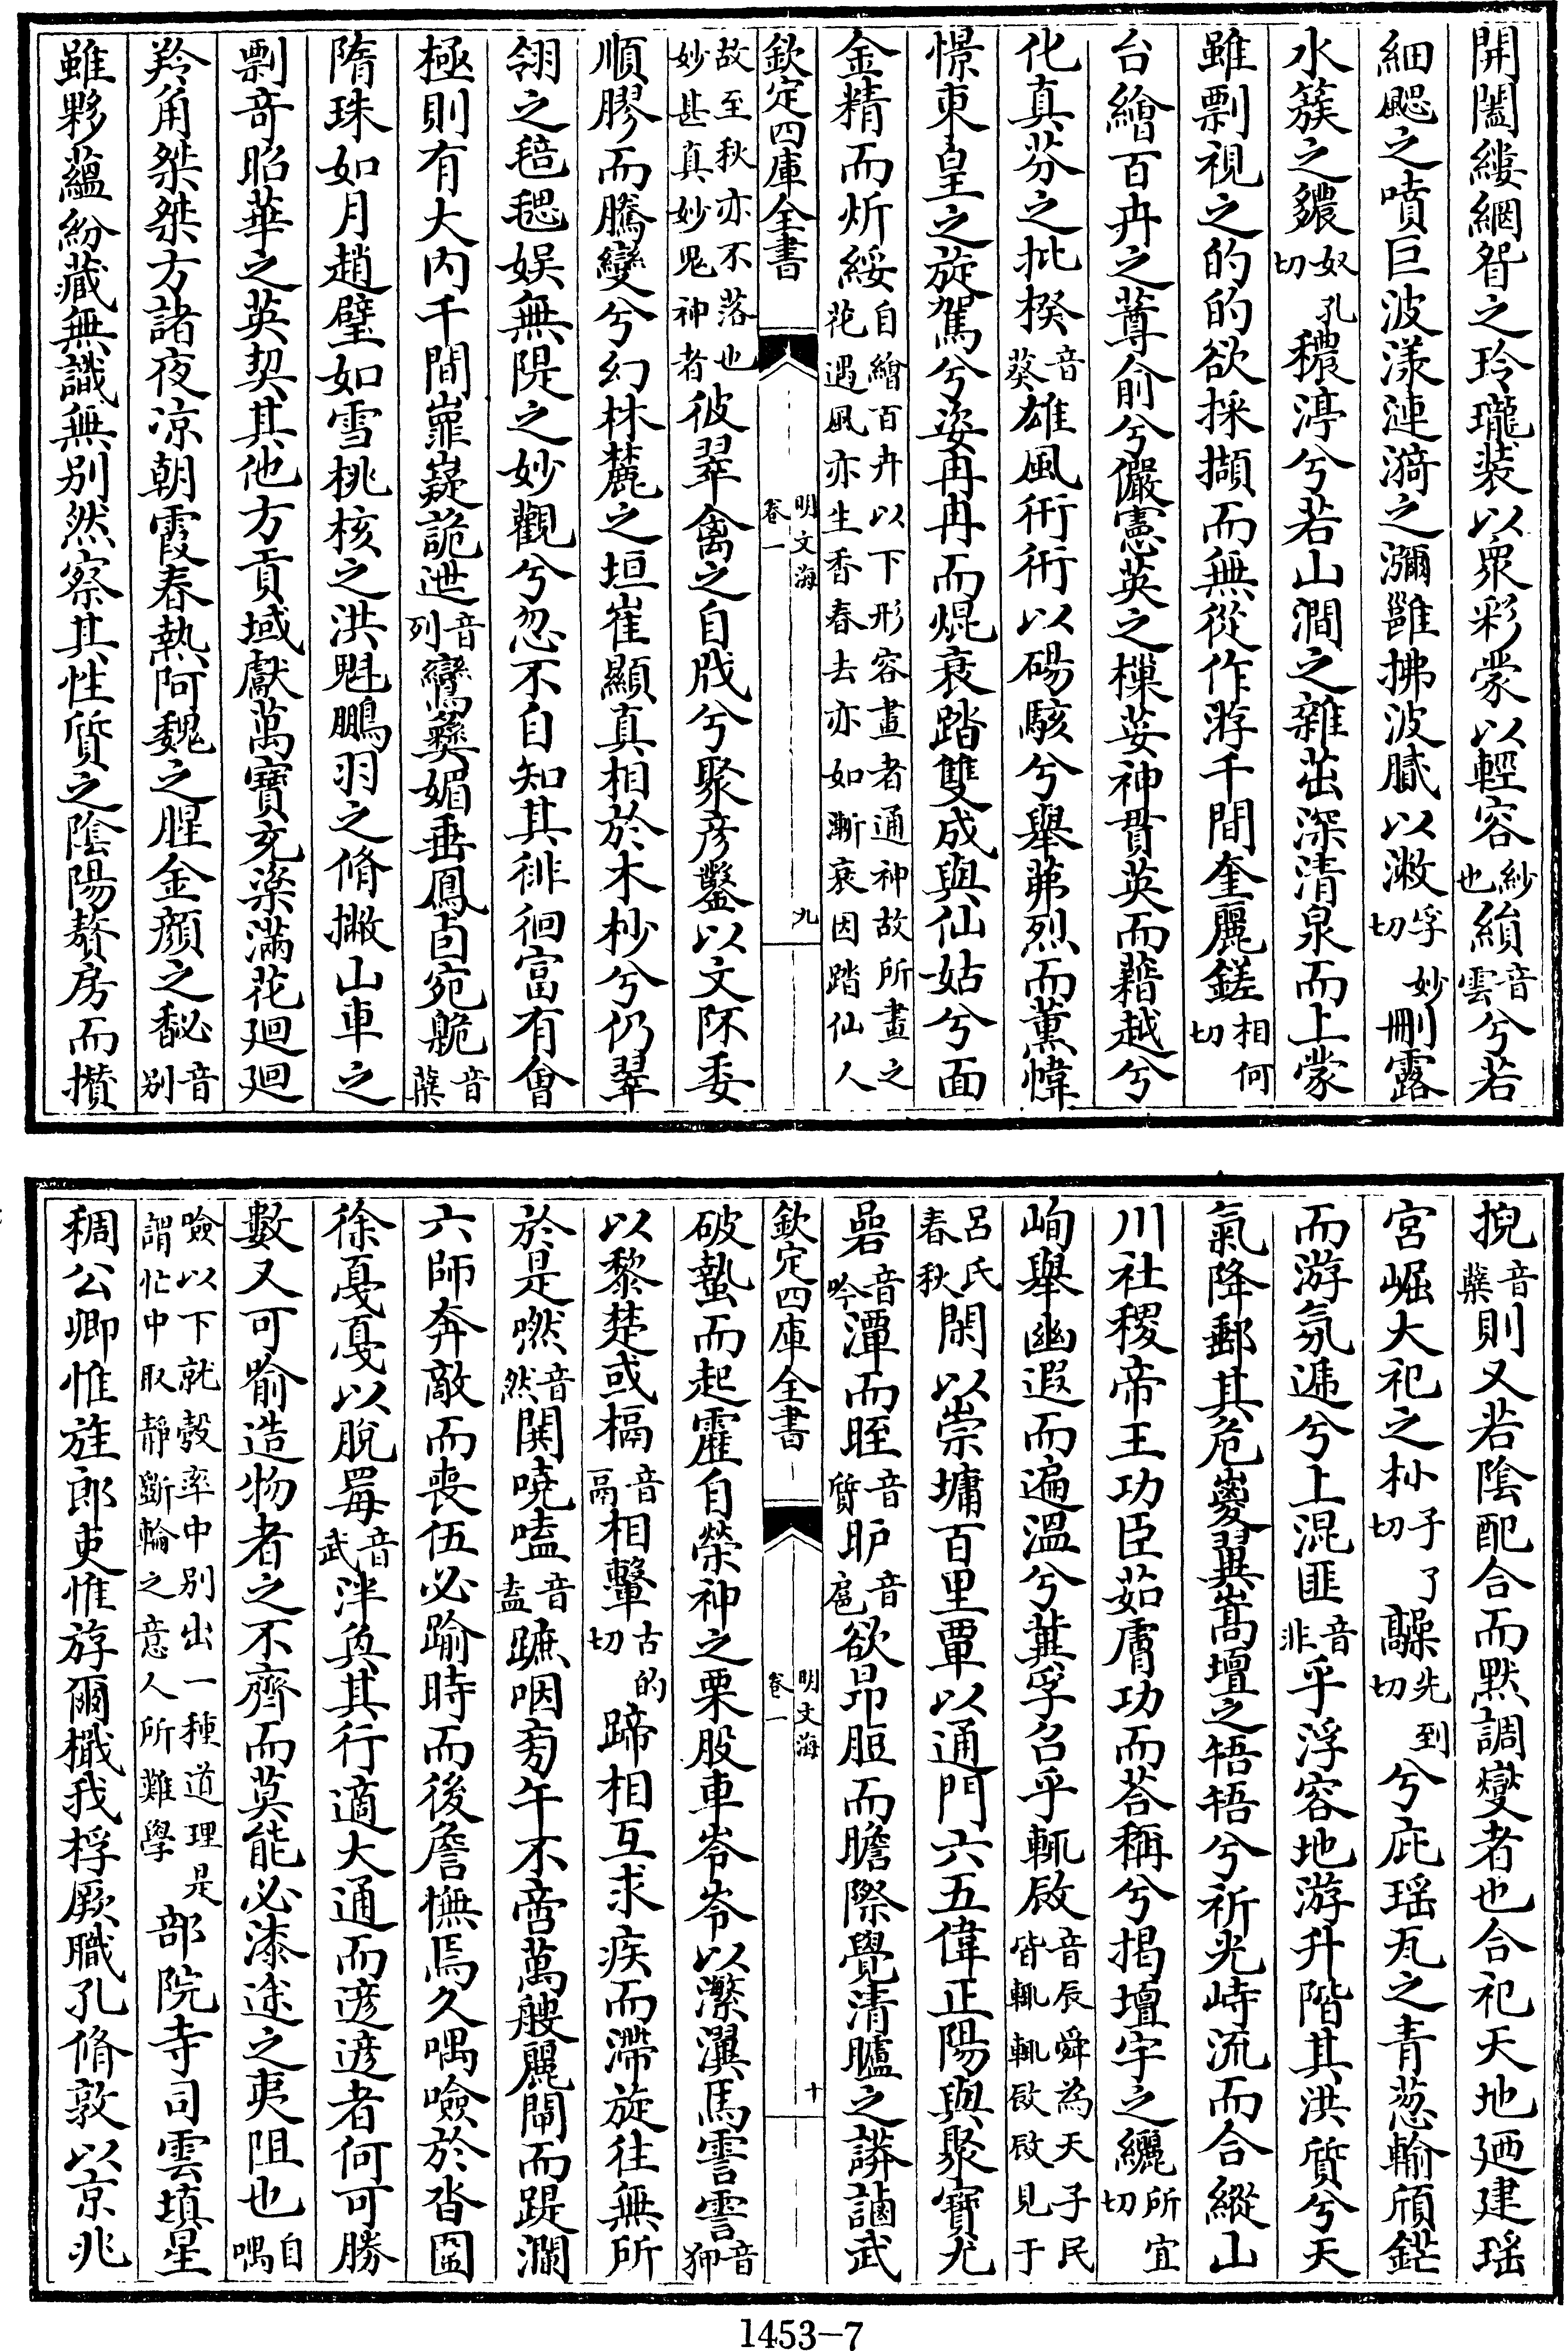 開闔縷網眢之玲瓏裝以眾彩蒙以輕容紗也縜音雲兮若
細颸之噴巨波漾漣漪之瀰雝拂波膩以潎孚妙切刪露
水簇之䵜奴孔切穠渟兮若山澗之雜茁深清泉而上蒙
雖剽視之的的欲採擷而無從作㳺千間奎麗鎈相何切
台繪百卉之蕚俞兮儼憲英之樔妟神貫英而藉越兮
化真芬之批楑音葵雄風術術以碭駭兮舉弟烈而薰幃
憬東皇之旋駕兮姿冉冉而焜衰踏雙成與仙姑兮面
金精而炘綏自繪百卉以下形容畫者通神故所畫之花遇風亦生香春去亦如漸衰因踏仙人
欽定四庫全書 明文海 卷一 九
故至秋亦不落也妙甚真妙鬼神者彼翠禽之自戕兮聚彦鑿以文阫委
順膠而騰變兮幻林麓之垣崔顯真相於木杪兮仍翠
翎之毰毸娱無隄之妙觀兮忽不自知其徘徊富有會
極則有大内千間嶵嶷詭迣音列鸞彝媚垂鳳卣宛臲音櫱
隋珠如月趙璧如雪桃核之洪魁鵬羽之脩撇山車之
剽竒昭華之英契其他方貢域獻萬寶充楽滿花廻廻
羚角桀桀方諸夜凉朝霞春執阿魏之腥金顔之馝音别
雖夥藴紛藏無識無别然察其性質之陰陽贅房而攢
掜音櫱則又若陰配合而默調燮者也合祀天地廼建瑶
宮崛大祀之朴子了切髞先到切兮庇瑶瓦之青葱輸頎鋩
而游氛遞兮上混匪音非乎浮容地游升階其洪質兮天
氣降郵其危夔翼嵩壇之牾牾兮祈光峙流而合縱山
川社稷帝王功臣茹膚功而荅稱兮揭壇宇之纚所宜切
峋舉幽遐而遍溫兮冀孚召乎輒啟音辰舜為天子民皆輒輒啟啟見于
呂氏春秋閑以崇墉百里覃以通門六五偉正陽與聚寶尤
碞音吟潭而晊音質昈音扈欲昂胆而瞻際覺清矑之譾譾武
欽定四庫全書 明文海 卷一 十
破蟄而起靃自榮神之栗股車岺岺以瀿瀷馬雸雸音狎
以黎楚或槅音鬲相轚古的切蹄相互求疾而滯旋往無所
於是嘫音然鬨嘵嗑音盍蹠咽㫄午不啻萬艘麗閘而踶瀾
六師奔敵而喪伍必踰時而後詹憮焉久喁噞於沓圂
徐戞戞以脫罞音武泮奐其行適大通而遃遃者何可勝
數又可喻造物者之不齊而莫能必漆途之夷阻也自喁
噞以下就彀率中别出一種道理是謂忙中取靜斵輪之意人所難學部院寺司雲填星
稠公卿惟旌郎吏惟斿爾檝我桴厥職孔脩敦以京兆
1453-7